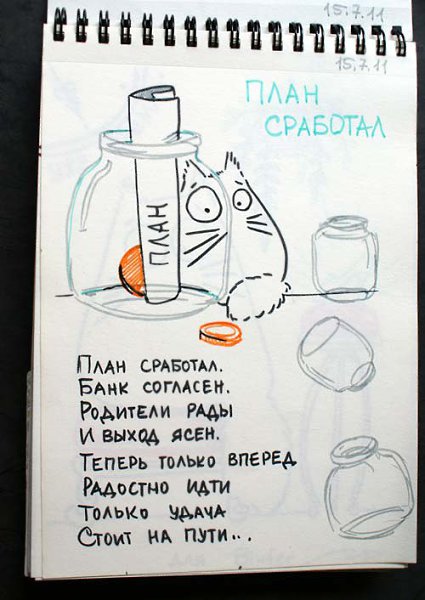 15.7.11
15.7.11
ПЛАН
СРАБОТАЛ
ПЛАН
ПЛАН СРАБОТАЛ.
БАНК СОГЛАСЕН.
РОДИТЕЛИ РАДЫ
И ВЫХОД ЯСЕН.
ТЕПЕРЬ ТОЛЬКО ВПЕРЕД
РАДОСТНО ИДТИ
ТОЛЬКО УДАЧА
СТОИТ НА ПУТИ...